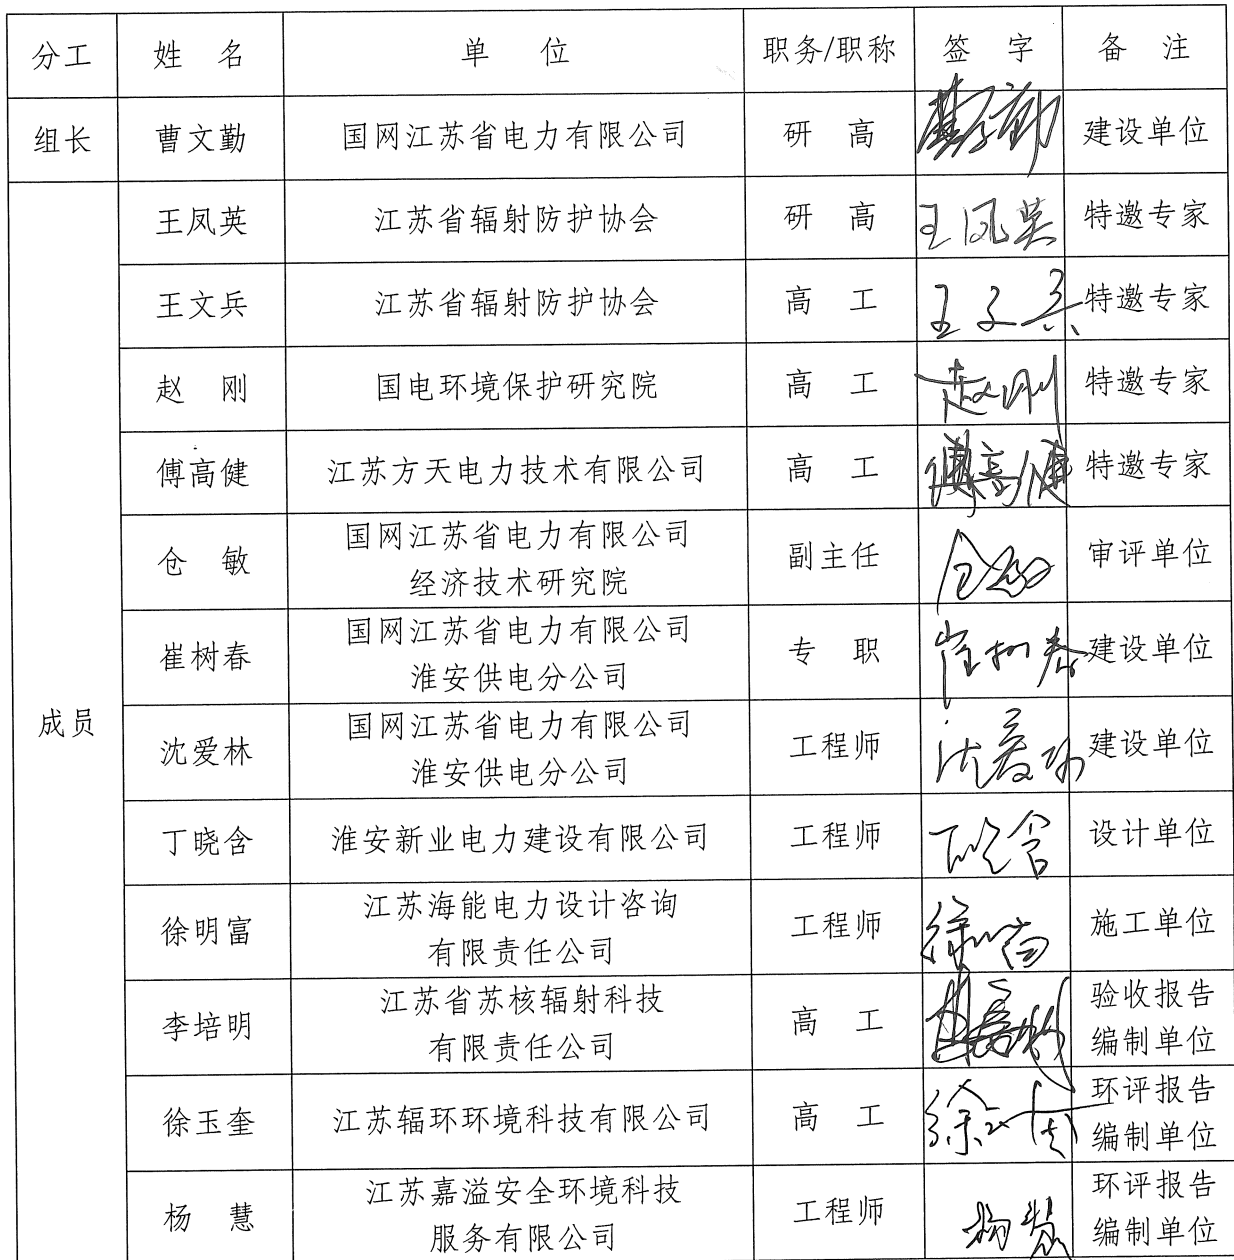 分工 姓 名 单 位 职务/职称 签 字 备 注
组长 曹文勤 国网江苏省电力有限公司 研 高 曹文勤 建设单位
成员
王凤英 江苏省辐射防护协会 研 高 王凤英 特邀专家
王文兵 江苏省辐射防护协会 高 工 王文兵 特邀专家
赵 刚 国电环境保护研究院 高 工 赵刚 特邀专家
傅高健 江苏方天电力技术有限公司 高 工 傅高健 特邀专家
仓 敏 国网江苏省电力有限公司
经济技术研究院 副主任 仓敏 审评单位
崔树春 国网江苏省电力有限公司
淮安供电分公司 专 职 崔树春 建设单位
沈爱林 国网江苏省电力有限公司
淮安供电分公司 工程师 沈爱林 建设单位
丁晓含 淮安新业电力建设有限公司 工程师 丁晓含 设计单位
徐明富 江苏海能电力设计咨询
有限责任公司 工程师 施工单位
李培明 江苏省苏核辐射科技
有限责任公司 高 工 验收报告
编制单位
徐玉奎 江苏辐环环境科技有限公司 高 工 环评报告
编制单位
杨 慧 江苏嘉溢安全环境科技
服务有限公司 工程师 杨慧 环评报告
编制单位